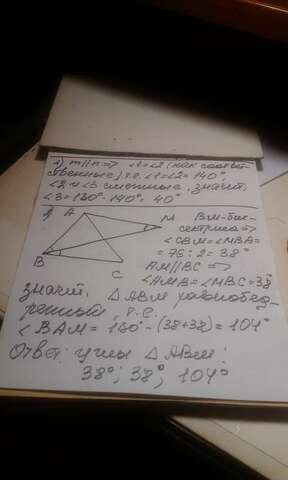 1) m||n => ∠1=∠2 (как соответ-
ственные), т.е. ∠1=∠2=140°
∠3 = 180° - 140° = 40°
A
M
B
C
BM-бис-
сектриса =>
∠CBM = ∠MBA =
= 76 : 2 = 38°
AM||BC =>
∠AMB = ∠MBC = 38°
значит, △ABM равнобед-
ренный, т.е.
∠BAM = 180° - (38+38) = 104°
Ответ: углы △ABM:
38°; 38°, 104°